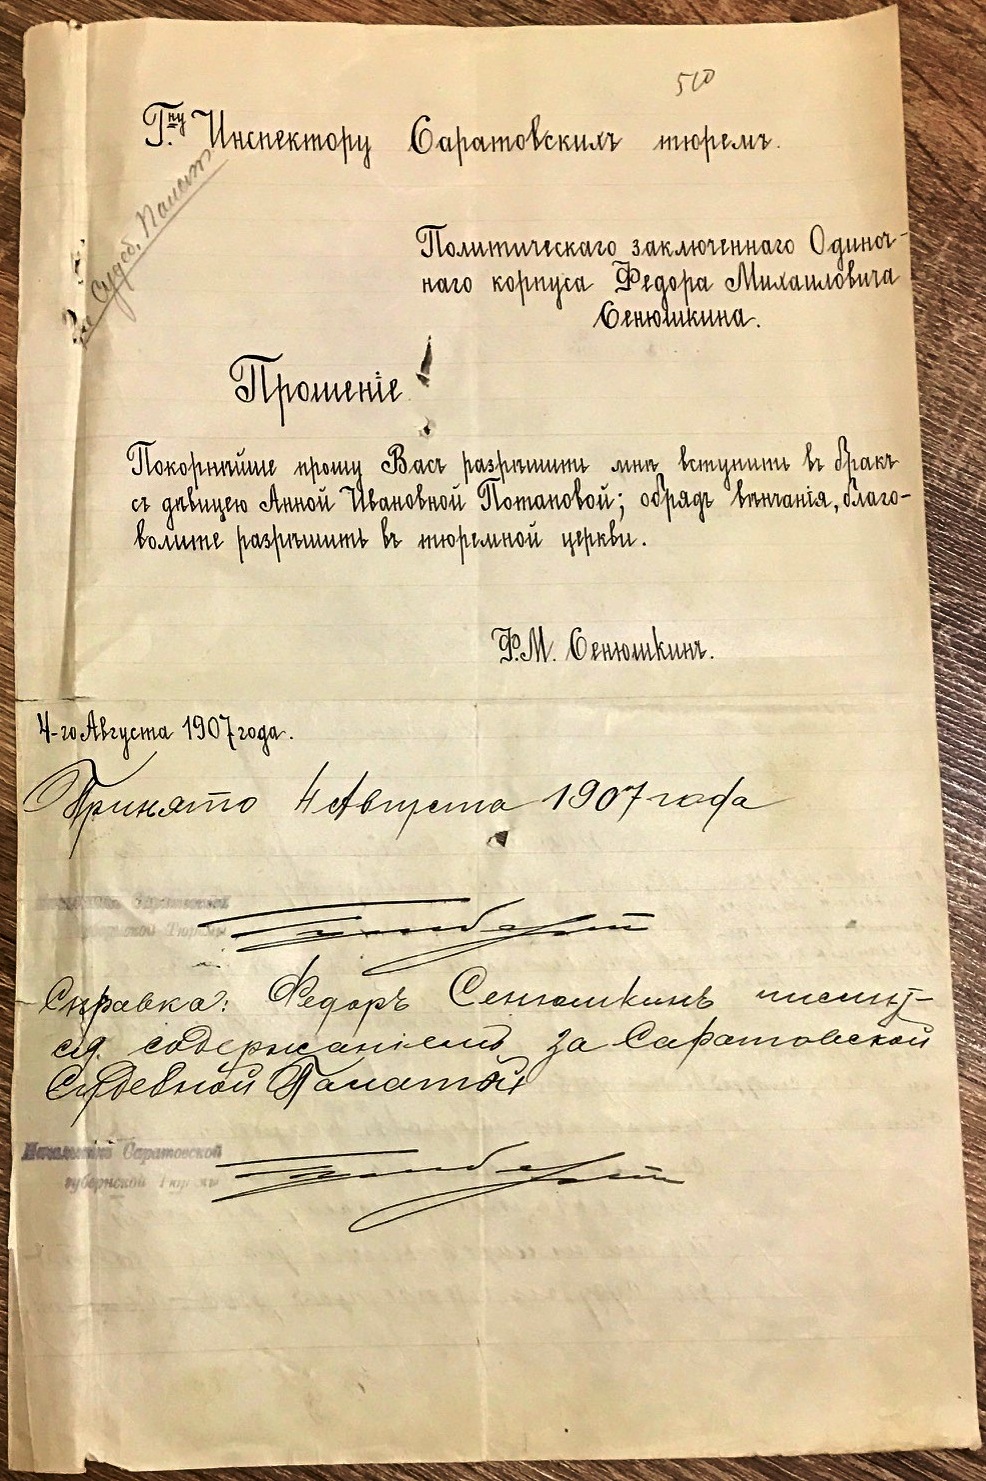 510
Г.ну Инспектору Саратовскихъ тюремъ.
Судеб. Палат
Политическаго заключеннаго Одиноч-
наго корпуса Федора Михаиловича
Сенюшкина.
Прошенiе
Покорнѣйше прошу Васъ разрѣшить мнѣ вступить въ бракъ
съ дѣвицею Анной Ивановной Потаповой; обрядъ вѣнчанiя, благо-
волите разрѣшить въ тюремной церкви.
Ф.М. Сенюшкинъ.
4-го Августа 1907 года.
Принято 4 Августа 1907 года
Саратовской
Тюрьмы
Справка: Федоръ Сенюшкинъ числит-
ся содержанiемъ за Саратовской
Судебной Палатой
Начальникъ Саратовской
губернской Тюрьмы